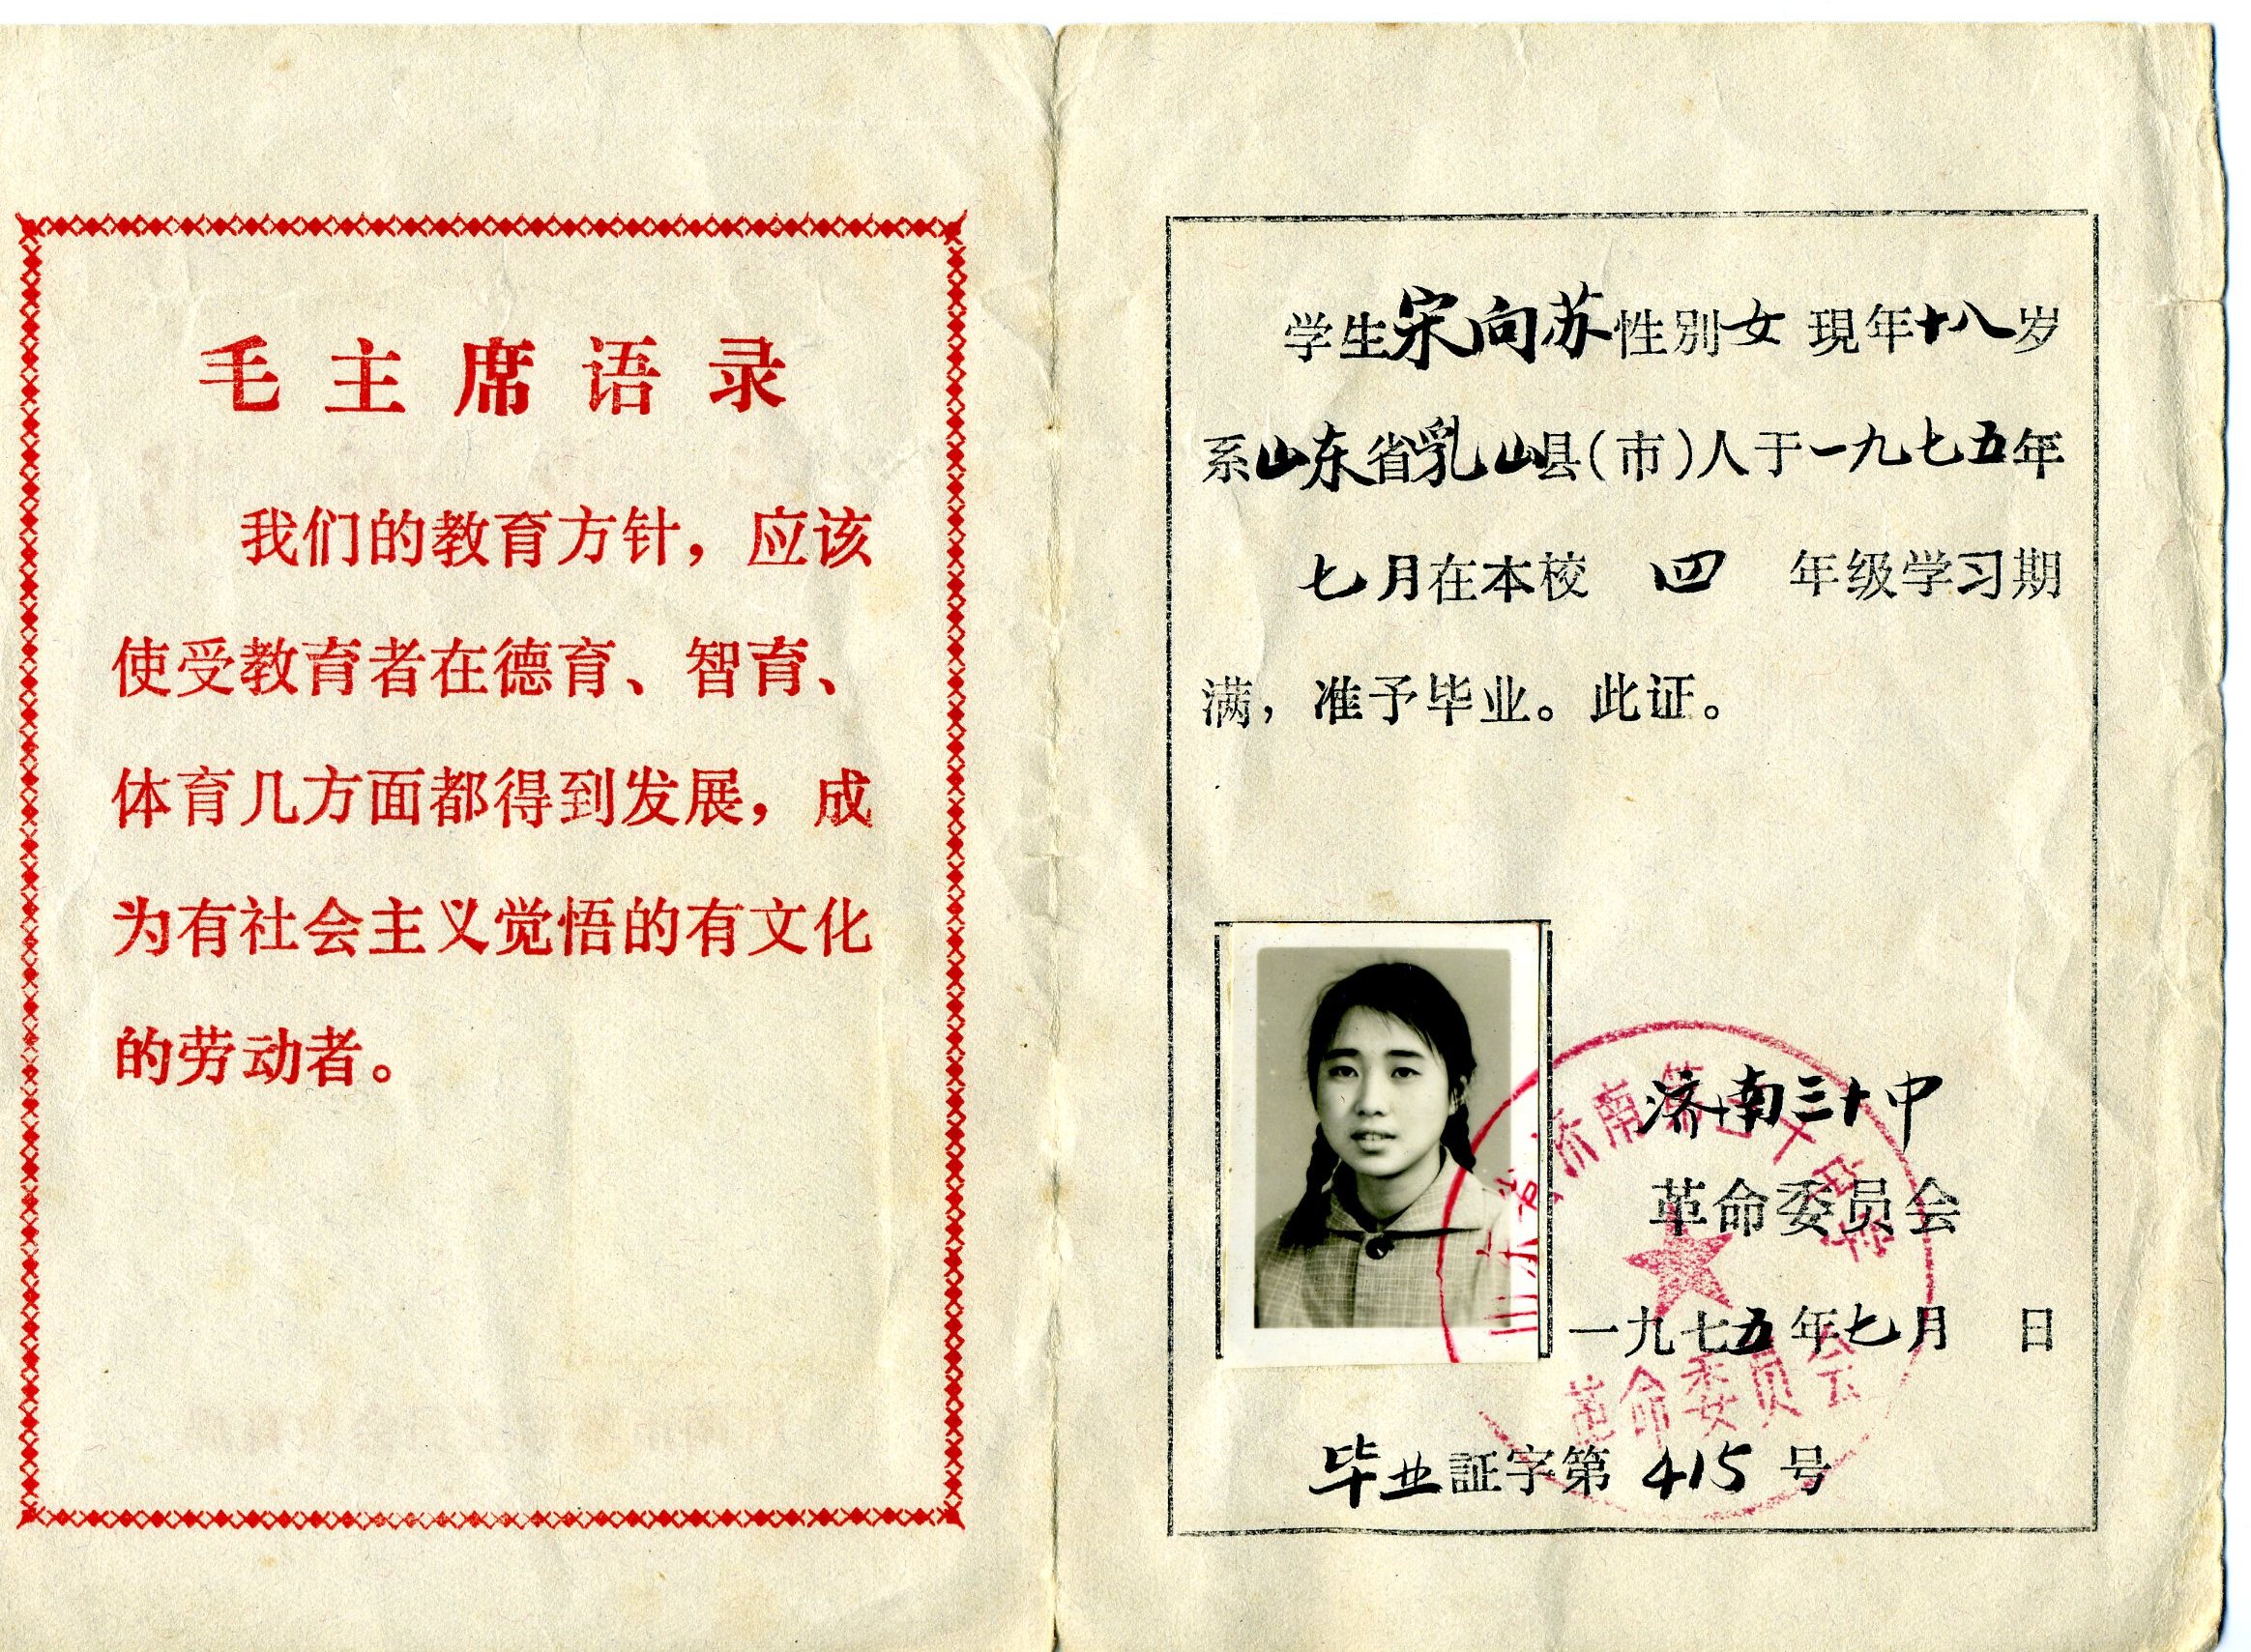 毛主席语录
我们的教育方针，应该
使受教育者在德育、智育、
体育几方面都得到发展，成
为有社会主义觉悟的有文化
的劳动者。
学生宋向苏性别女 現年十八岁
系山东省乳山县(市)人于一九七五年
七月在本校 四 年级学习期
满，准予毕业。此证。
济南三十中
革命委员会
一九七五年七月 日
毕业証字第 415 号
山东省济南第三十中学
革命委员会